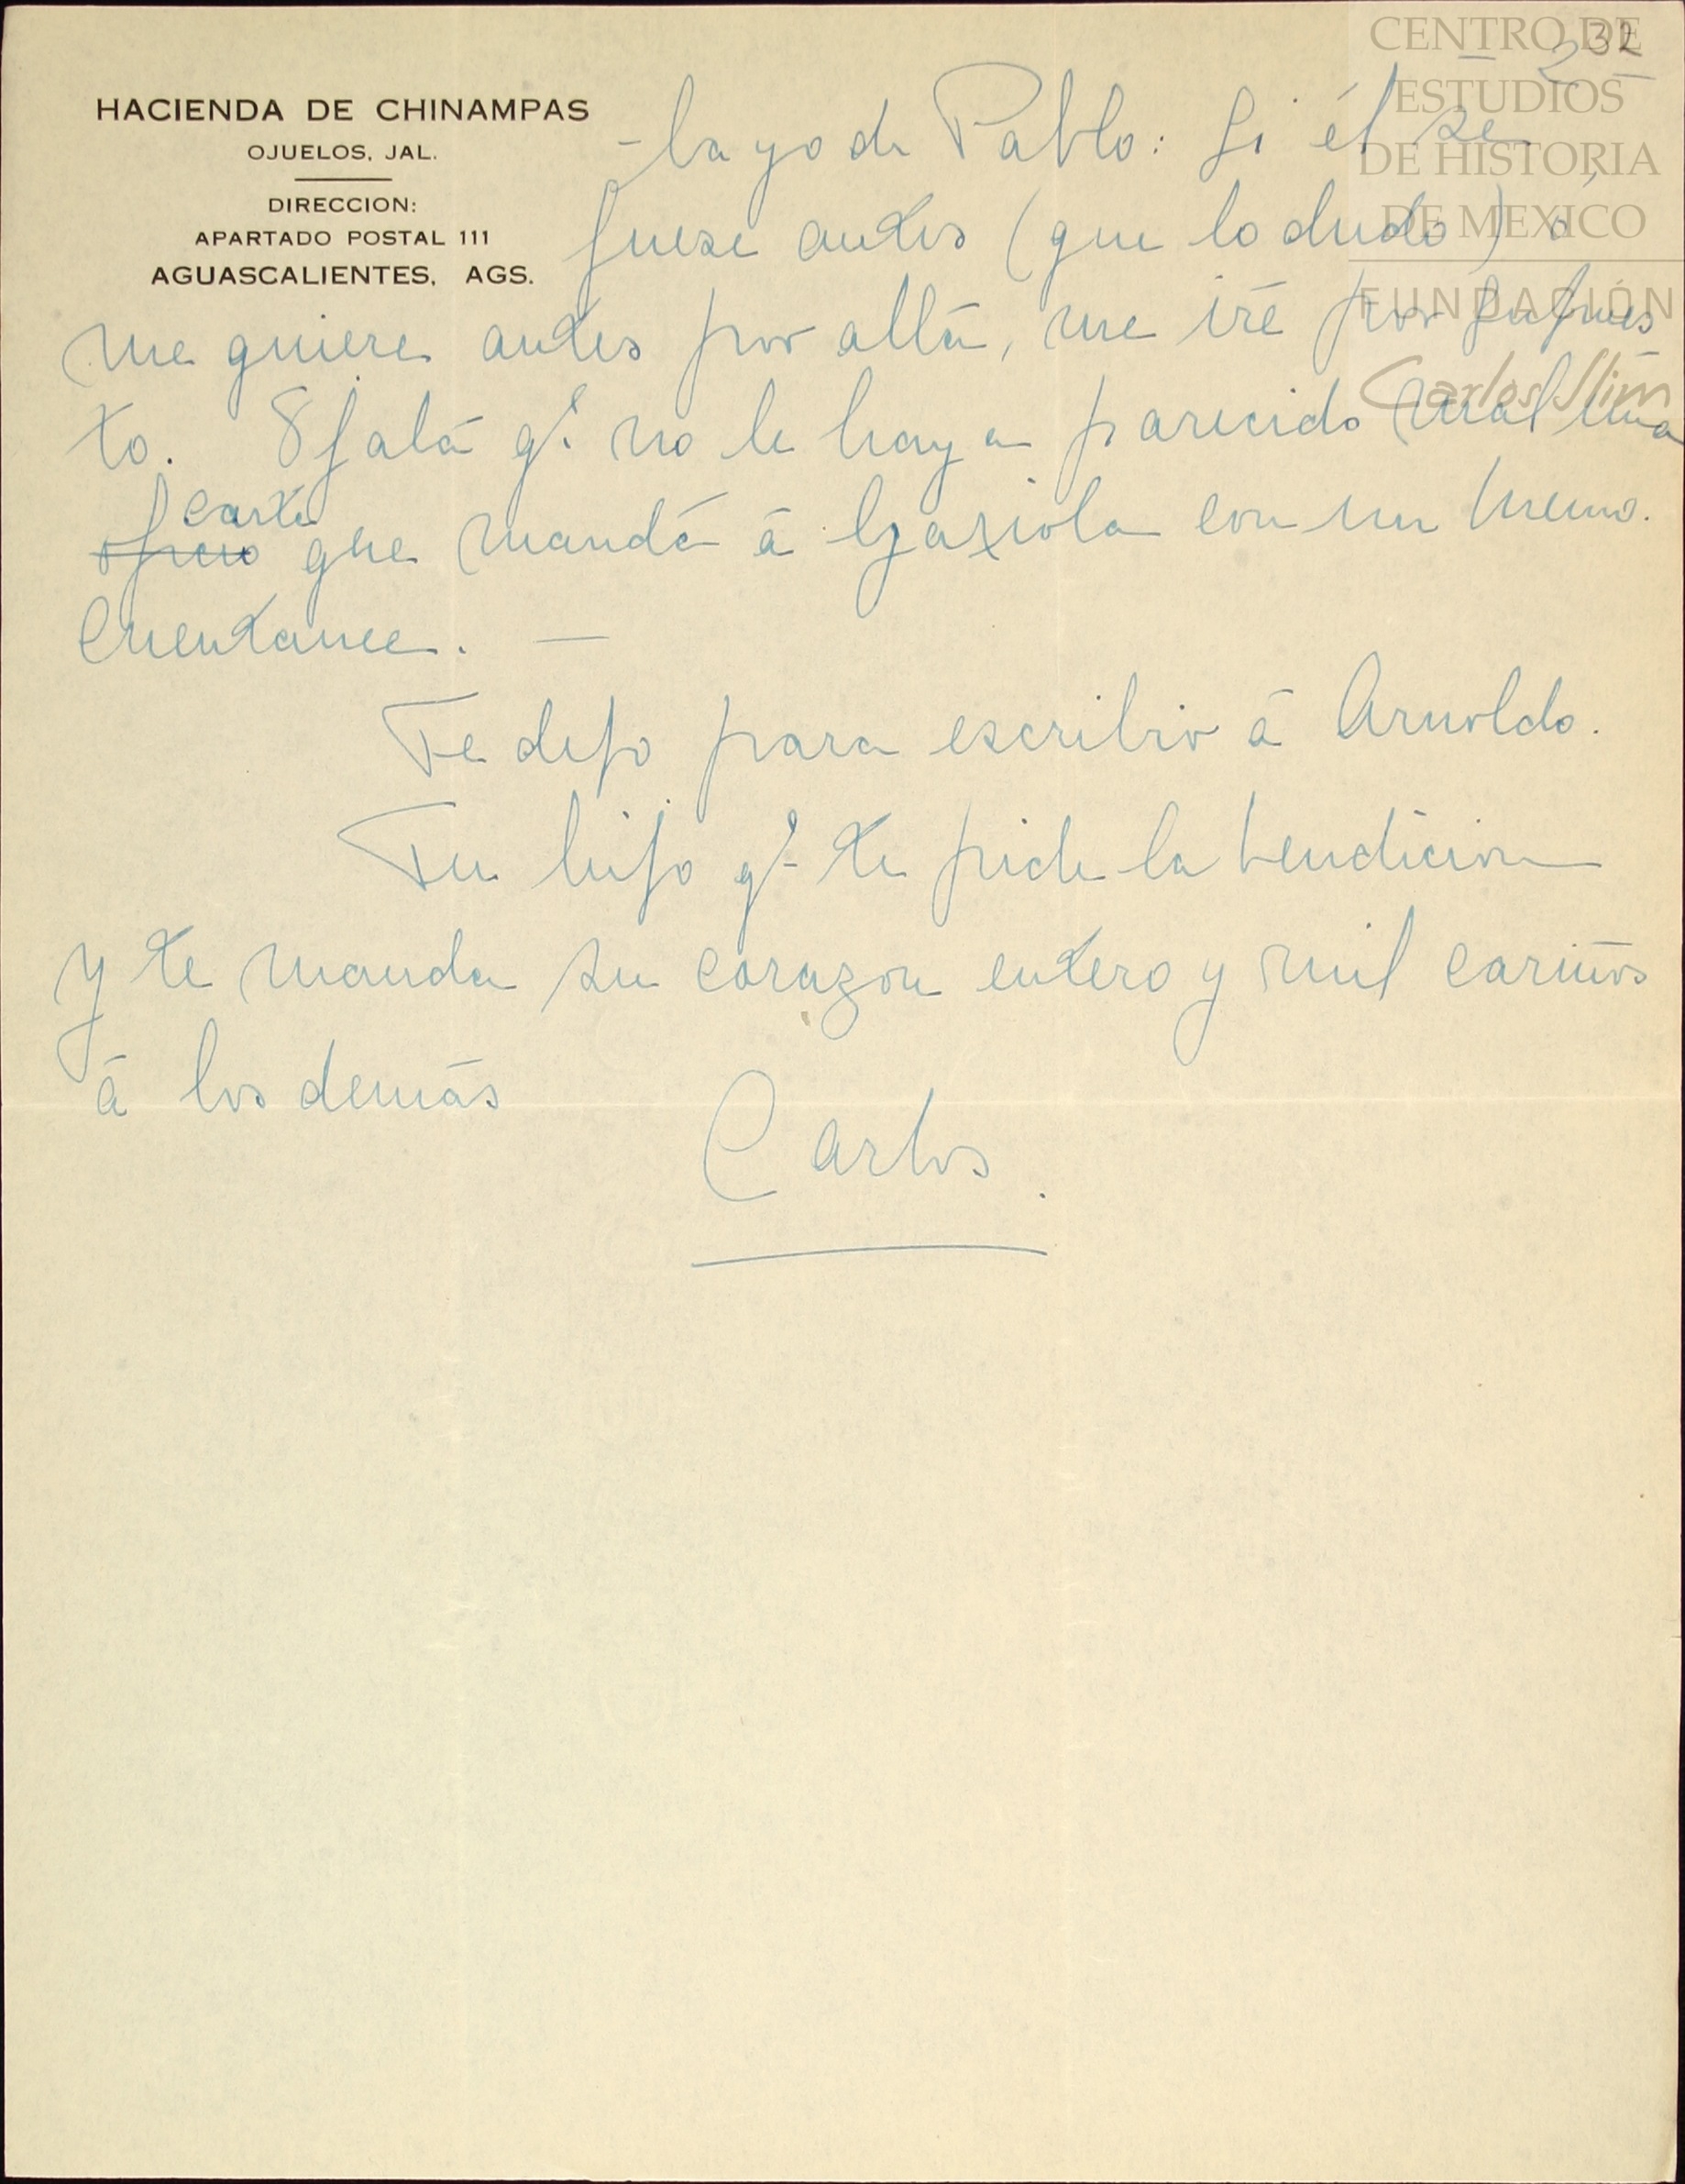 CENTRO DE
ESTUDIOS
DE HISTORIA
DE MEXICO
FUNDACIÓN
Carlos Slim
32
- 2 -
HACIENDA DE CHINAMPAS
OJUELOS, JAL.
DIRECCION:
APARTADO POSTAL 111
AGUASCALIENTES, AGS.
-ba yo de Pablo: Si él se
fuese antes (que lo dudo) ó
me quiere antes por allá, me iré por supues
to. Ojalá q.e no le haya parecido mal una
carta
oficio que mandé á Gaxiola con un Memo.
Cuentame. —
Te dejo para escribir á Arnoldo.
Tu hijo q.e te pide la bendicion
y te manda su corazon entero y mil cariños
á los demás
Carlos.